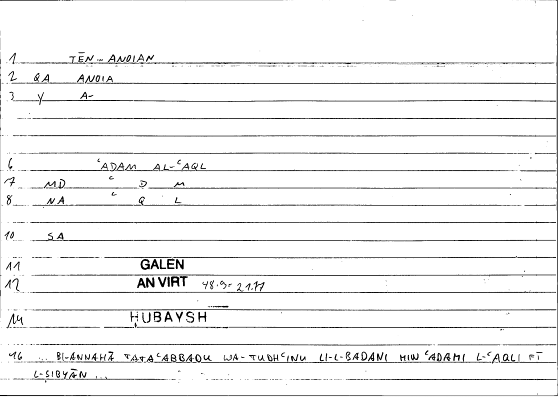 1 TĒN ANOIAN
2 QA ANOIA
3 Y A-
6 ʿADAM AL-ʿAQL
7 MD ʿ D M
8 NA ʿ Q L
10 SA
11 GALEN
12 AN VIRT 48.9-21.11
14 ḤUBAYSH
16 ... BI-ANNAHĀ TATAʿABBADU WA-TUDHʿINU LI-L-BADANI MIN ʿADAMI L-ʿAQLI FĪ
L-ṢIBYĀN ...